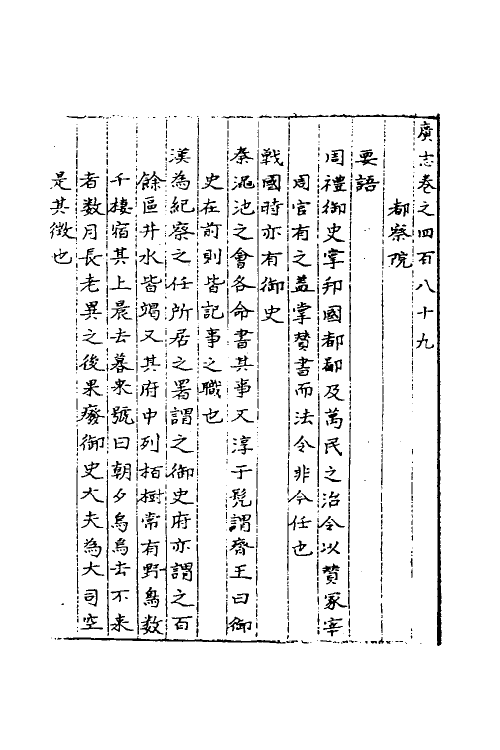 廣志卷之四百八十九
都察院
要語
周禮御史掌邦國都鄙及萬民之治令以贊冢宰
周官有之蓋掌贊書而法令非今任也
戰國時亦有御史
秦澠池之會各命書其事又淳于髡謂齊王曰御
史在前則皆記事之職也
漢為紀察之任所居之署謂之御史府亦謂之百
餘區井水皆竭又其府中列栢樹常有野鳥數
千棲宿其上晨去暮來號曰朝夕鳥烏去不来
者数月長老異之後果廢御史大夫為大司空
是其徴也